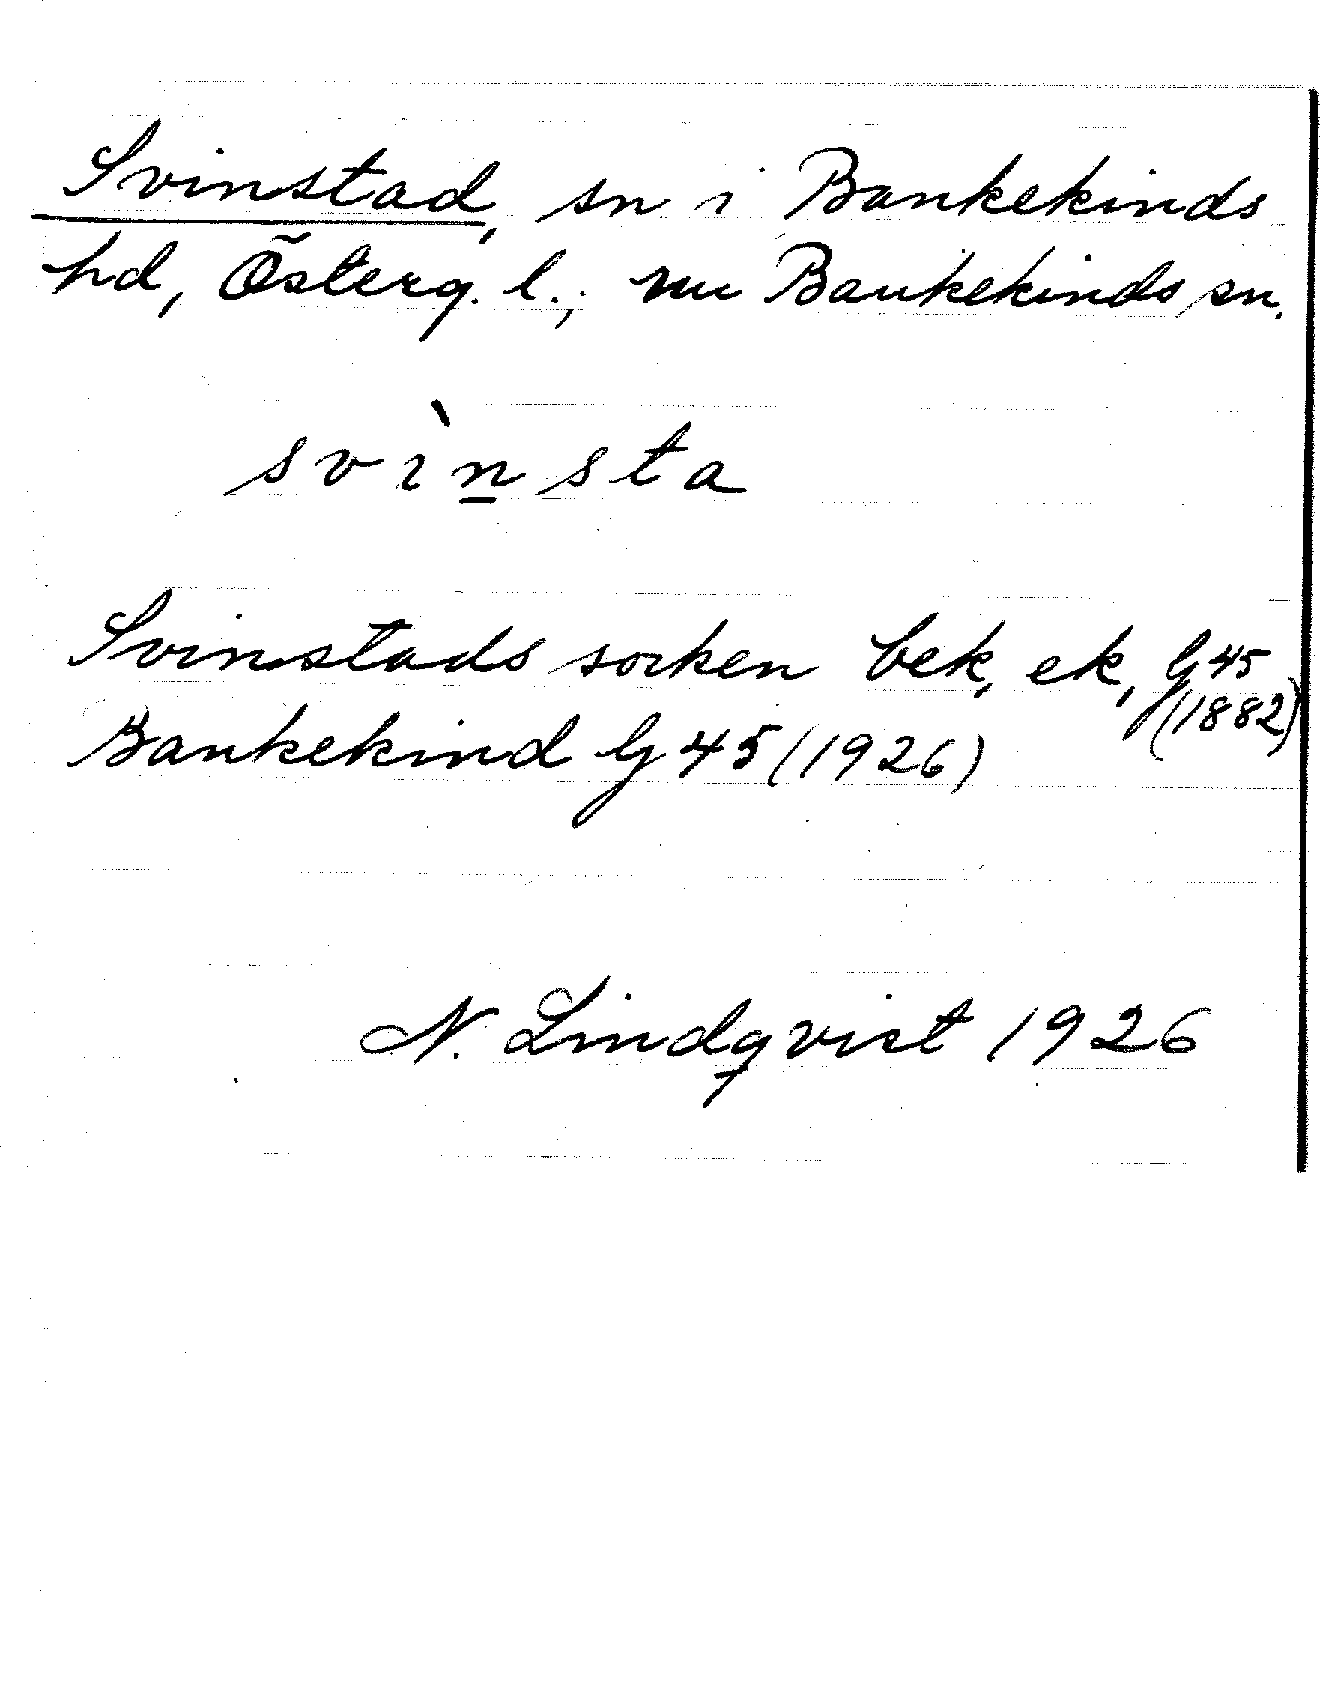 Svinstad, sn i Bankekinds
hd, Österg. l.; nu Bankekinds sn.
svìn̲sta
Svinstads socken bek, ek, G 45
(1882)
Bankekind G 45 (1926)
N. Lindqvist 1926